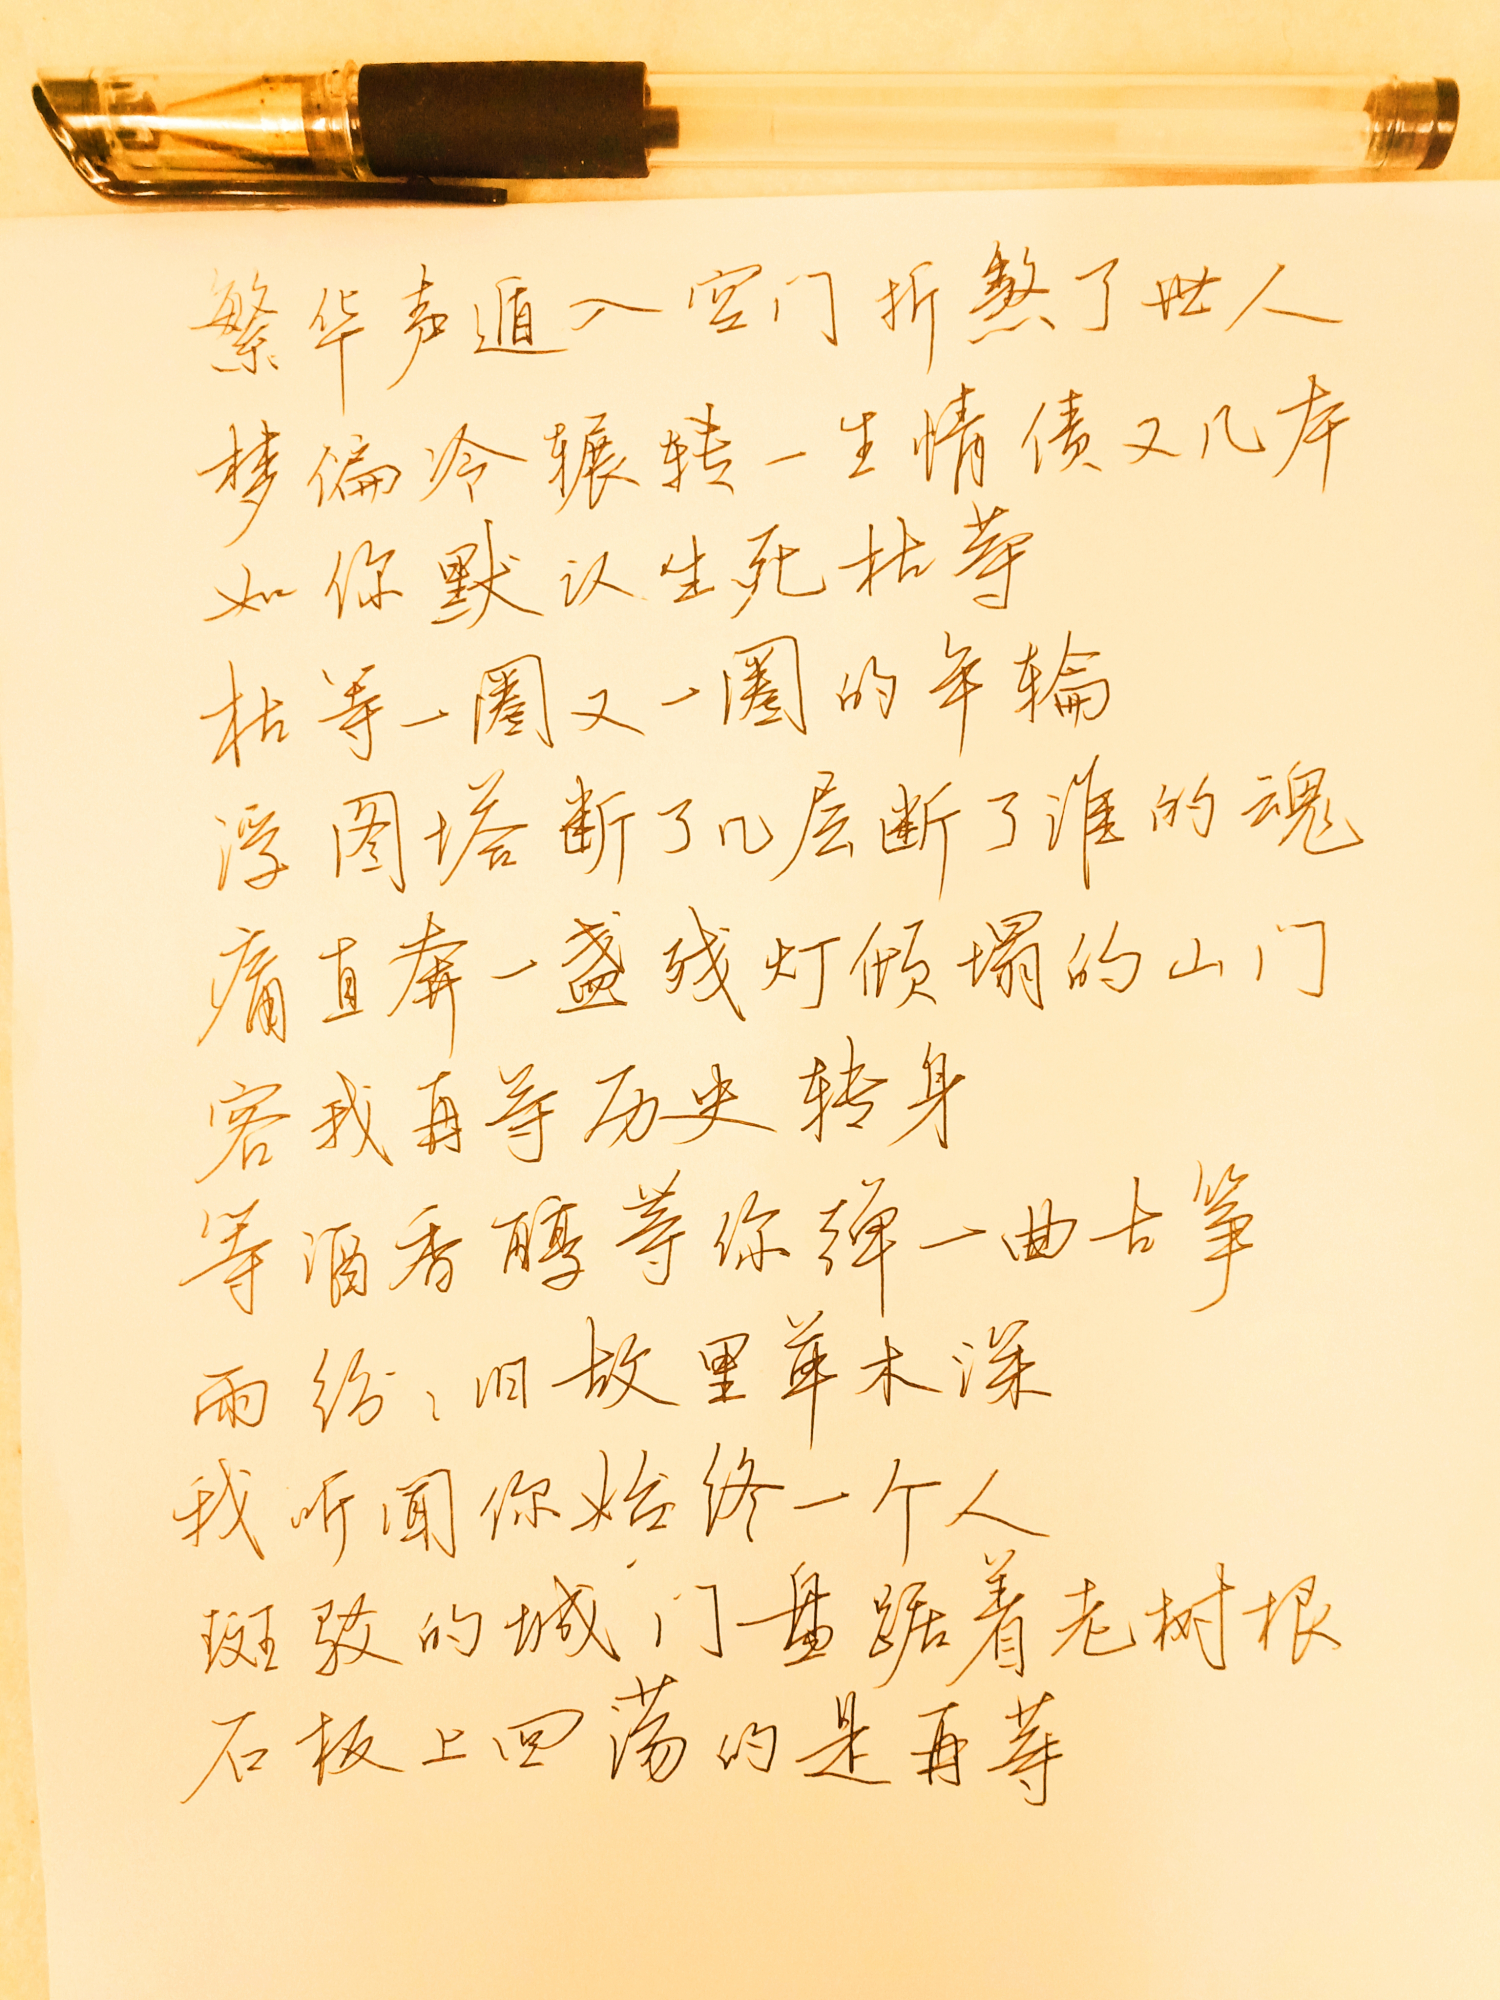 繁华声遁入空门折煞了世人
梦偏冷辗转一生情债又几本
如你默认生死枯等
枯等一圈又一圈的年轮
浮图塔断了几层断了谁的魂
痛直奔一盏残灯倾塌的山门
容我再等历史转身
等酒香醇等你弹一曲古筝
雨纷纷旧故里草木深
我听闻你始终一个人
斑驳的城门盘踞着老树根
石板上回荡的是再等